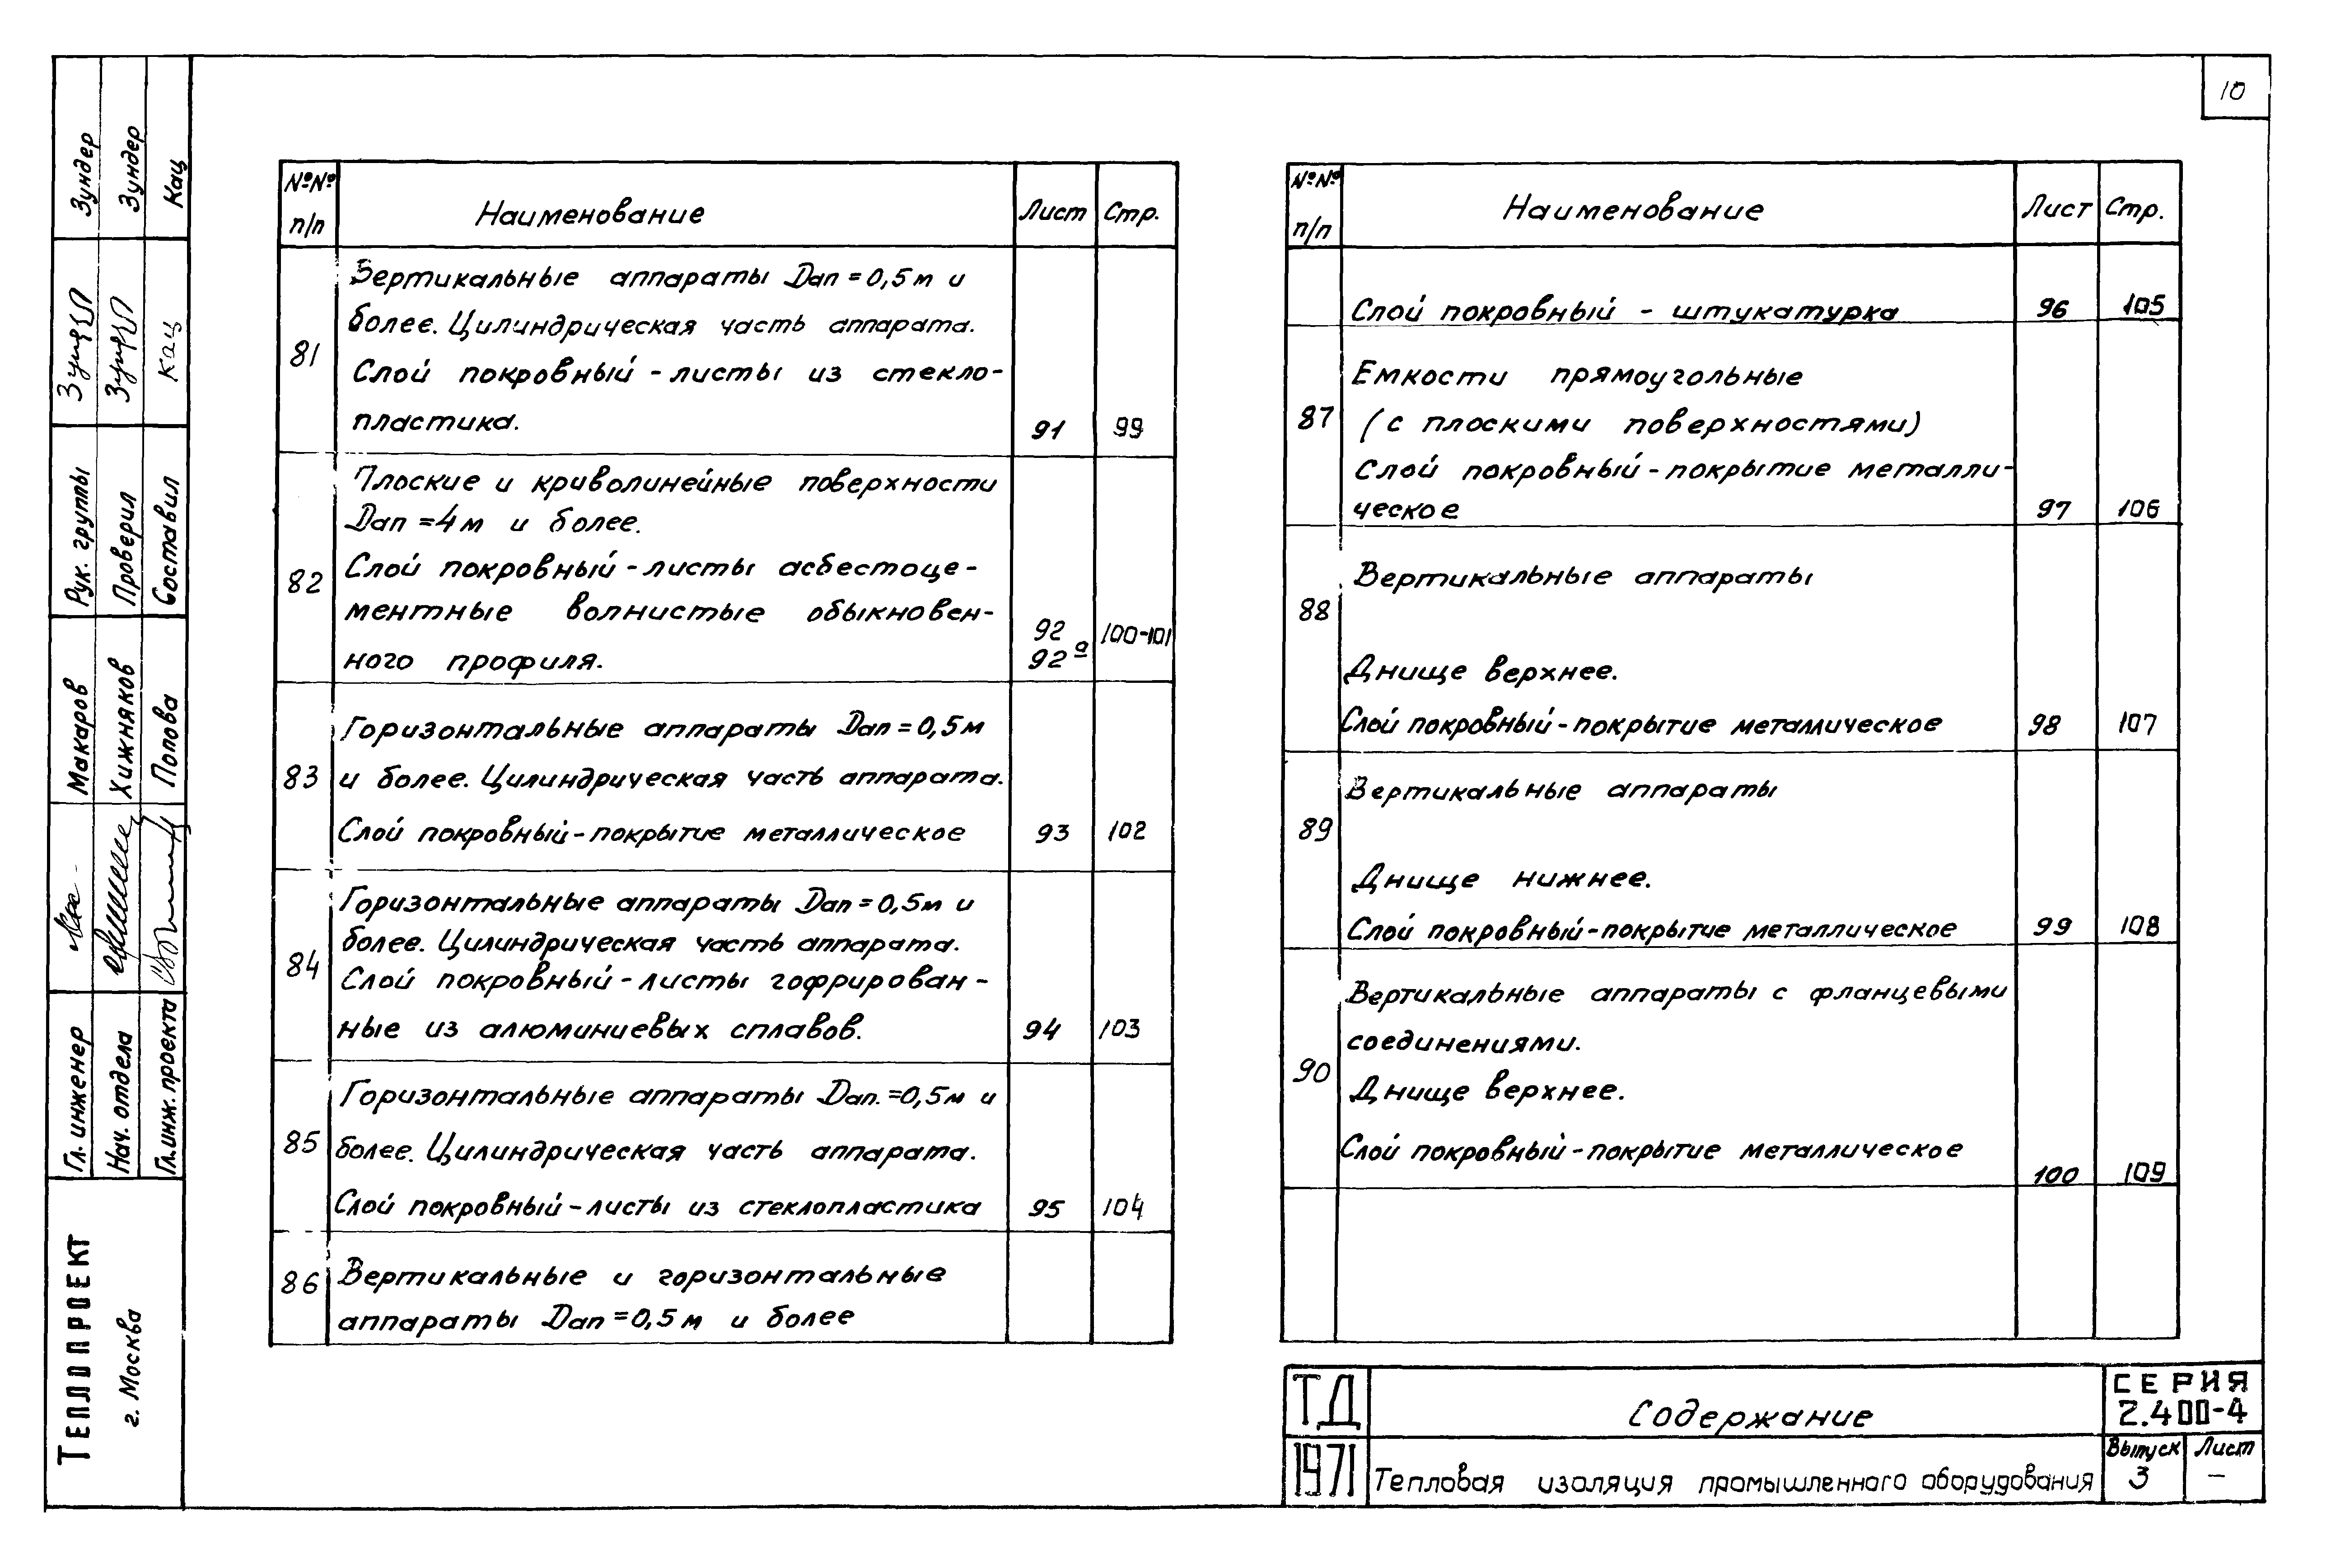 10
№№ п/п Наименование Лист Стр.
81 Вертикальные аппараты Dап = 0,5 м и
более. Цилиндрическая часть аппарата.
Слой покровный - листы из стекло-
пластика. 91 99
82 Плоские и криволинейные поверхности
Dап = 4 м и более.
Слой покровный - листы асбестоце-
ментные волнистые обыкновен-
ного профиля. 92 92а 100-101
83 Горизонтальные аппараты Dап = 0,5 м
и более. Цилиндрическая часть аппарата.
Слой покровный - покрытие металлическое 93 102
84 Горизонтальные аппараты Dап = 0,5 м и
более. Цилиндрическая часть аппарата.
Слой покровный - листы гофрирован-
ные из алюминиевых сплавов. 94 103
85 Горизонтальные аппараты Dап. = 0,5 м и
более. Цилиндрическая часть аппарата.
Слой покровный - листы из стеклопластика 95 104
86 Вертикальные и горизонтальные
аппараты Dап = 0,5 м и более
№№ п/п Наименование Лист Стр.
Слой покровный - штукатурка 96 105
87 Емкости прямоугольные
(с плоскими поверхностями)
Слой покровный - покрытие металли-
ческое 97 106
88 Вертикальные аппараты
Днище верхнее.
Слой покровный - покрытие металлическое 98 107
89 Вертикальные аппараты
Днище нижнее.
Слой покровный - покрытие металлическое 99 108
90 Вертикальные аппараты с фланцевыми
соединениями.
Днище верхнее.
Слой покровный - покрытие металлическое
100 109
ТД Содержание СЕРИЯ 2.400-4
1971 Тепловая изоляция промышленного оборудования Выпуск 3 Лист —
ТЕПЛОПРОЕКТ
г. Москва
Гл. инженер Макаров Рук. группы Зундер
Нач. отдела Хижняков Проверил Зундер
Гл. инж. проекта Попова Составил Кац Кац